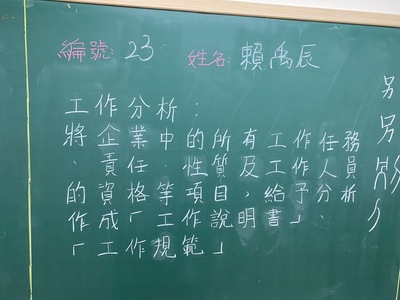 編號: 23 姓名: 賴禹辰
工作分析:
將企業中的所有工作任務
、責任、性質及工作人員
的資格等項目,給予分析
作成「工作說明書」、
「工作規範」
另
另